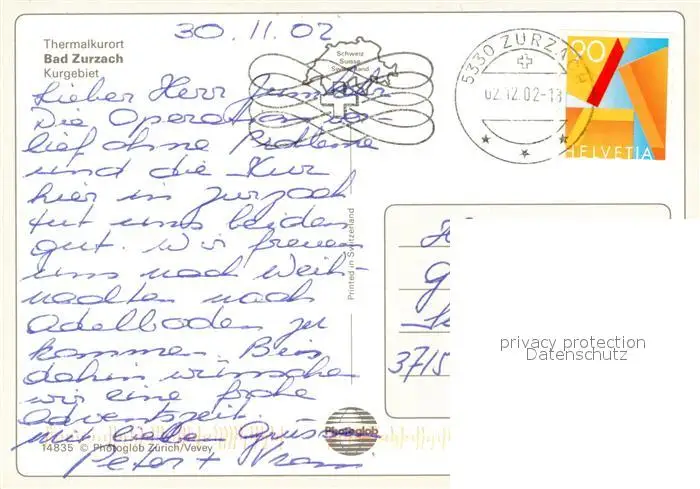 30.11.02
Thermalkurort
Bad Zurzach
Kurgebiet
Schweiz
Suisse
5330 ZURZACH
02.12.02-18
90
HELVETIA
Lieber Herr
Die Operation ver-
lief ohne Probleme
und die Kur
hier in Zurzach
tut uns beiden
gut. Wir freuen
uns nach Weih-
nachten nach
Adelboden zu
kommen. Bis
dahin wünschen
wir eine frohe
Adventszeit
mit lieben Grüssen
Peter +
Printed in Switzerland
3715
privacy protection
Datenschutz
Photoglob
14835 © Photoglob Zürich/Vevey